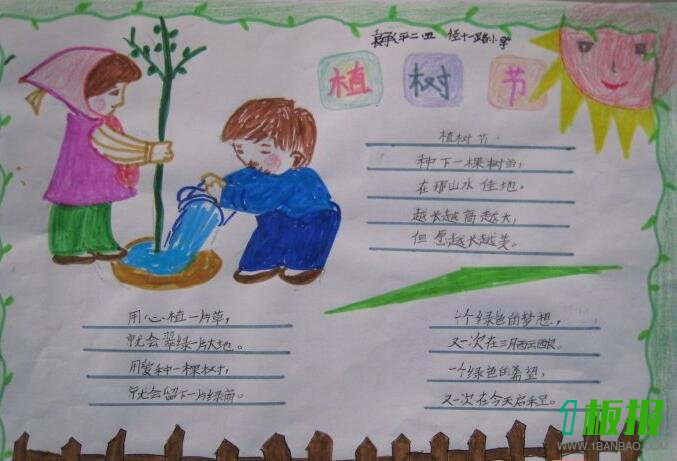 二四 径十一路小学
植树节
植树节
种下一棵树苗,
在那山水佳地。
越长越高越大,
但愿越长越美。
用心植一片草,
就会翠绿一片大地。
用爱种一棵树,
就会留下一片绿荫。
一个绿色的梦想,
又一次在三月
一个绿色的希望,
又一次在今天启程。
1板报
WWW.1BANBAO.COM